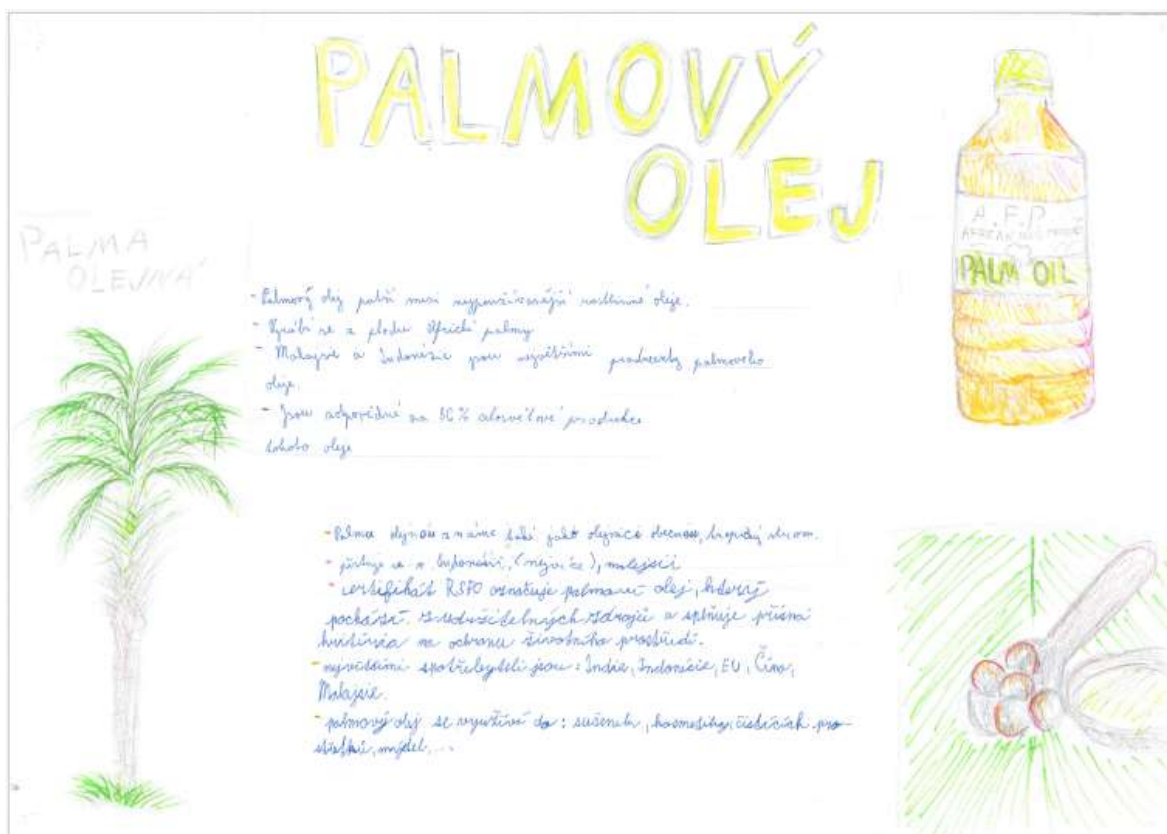 PALMOVÝ
OLEJ
PALMA
OLEJNÁ
A.F.P.
PALM OIL
- Palmový olej patří mezi nejpoužívanější rostlinné oleje.
- Vyrábí se z plodu Africké palmy
- Malajsie a Indonésie jsou největšími producenty palmového
oleje.
- Jsou odpovědné za % celosvětové produkce
tohoto oleje
- Palmu olejnou známe také jako olejnice obecnou, tropický strom.
- pěstuje se v Indonésii, (nejvíce), malajsii
- certifikát RSPO označuje palmový olej, který
pochází z udržitelných zdrojů a splňuje přísná
kritéria na ochranu životního prostředí.
- největšími spotřebiteli jsou: Indie, Indonésie, EU, Čína,
Malajsie.
- palmový olej se využívá do: sušenek, kosmetiky, čistících pro-
středků, mýdel,...